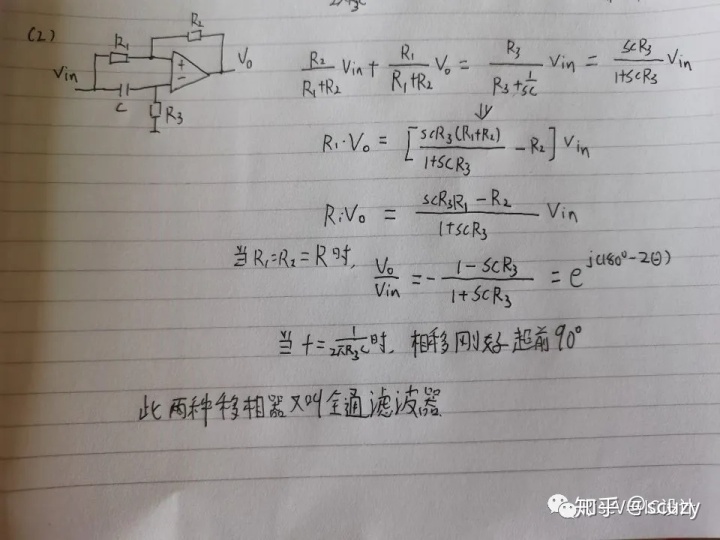 (2)
R₁
R₂
Vin
+
-
V₀
C
R₃
R₂/(R₁+R₂) Vin + R₁/(R₁+R₂) V₀ = R₃/(R₃+1/SC) Vin = SCR₃/(1+SCR₃) Vin
⇓
R₁·V₀ = [SCR₃(R₁+R₂)/(1+SCR₃) - R₂] Vin
R₁V₀ = (SCR₃R₁ - R₂)/(1+SCR₃) Vin
当R₁=R₂=R时, V₀/Vin = - (1-SCR₃)/(1+SCR₃) = e^{j(180°-2θ)}
当f=1/(2πR₃C)时, 相移刚好超前90°
此两种移相器又叫全通滤波器
知乎 @scuzy